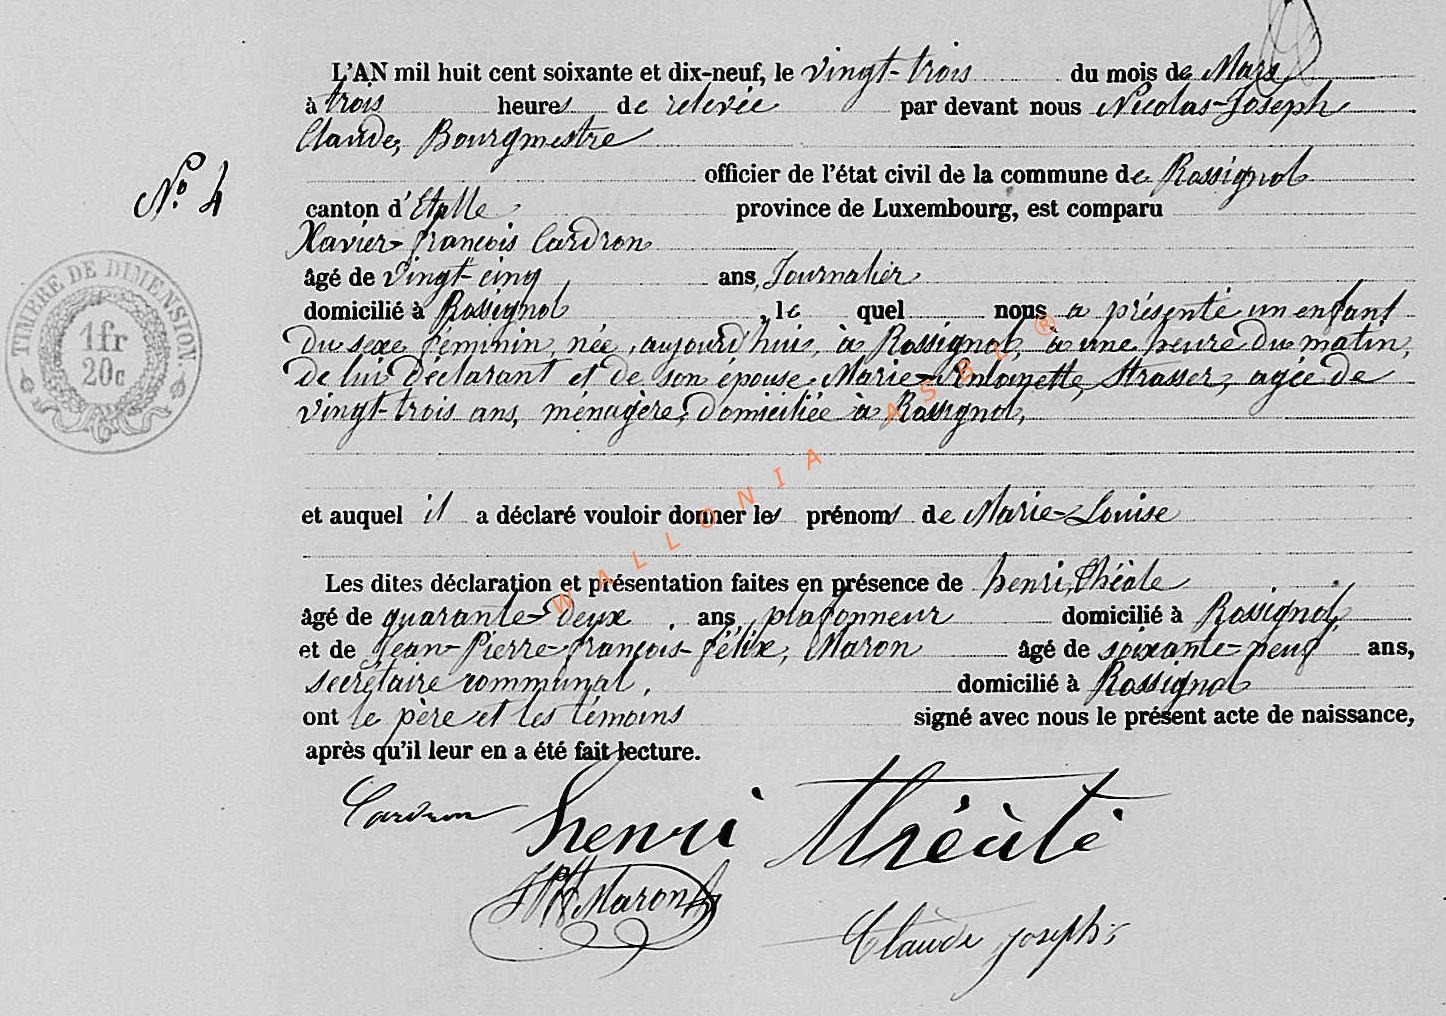 L'AN mil huit cent soixante et dix-neuf, le vingt-trois du mois de Mars
à trois heures de relevée par devant nous Nicolas-Joseph
Claude, Bourgmestre
officier de l'état civil de la commune de Rossignol
No. 4
canton d'Etalle province de Luxembourg, est comparu
Xavier-françois Cardron
âgé de vingt-cinq ans, Journalier
domicilié à Rossignol, le quel nous a présenté un enfant
du sexe féminin, née, aujourd'hui, à Rossignol, à une heure du matin,
de lui déclarant et de son épouse Marie-Antoinette, Strasser, agée de
vingt-trois ans, ménagère, domiciliée à Rossignol,
TIMBRE DE DIMENSION.
1fr
20c
et auquel il a déclaré vouloir donner les prénoms de Marie-Louise
Les dites déclaration et présentation faites en présence de henri,
âgé de quarante-deux, ans, plafonneur domicilié à Rossignol,
et de Jean-Pierre-françois-félix, Maron âgé de soixante-neuf ans,
secrétaire communal, domicilié à Rossignol
ont le père et les témoins signé avec nous le présent acte de naissance,
après qu'il leur en a été fait lecture.
Cardron henri
Maron
Claude joseph
WALLONIA ASBL ®